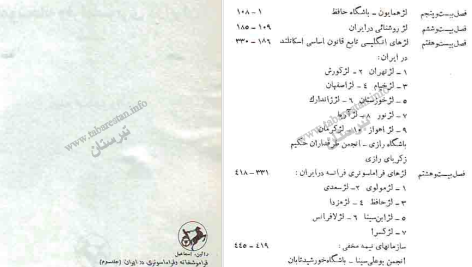 فصل بیست و پنجم لژ همایون ـ باشگاه حافظ ۱ - ۱۰۸
فصل بیست و ششم لژ روشنائی در ایران ۱۰۹ - ۱۸۵
فصل بیست و هفتم لژهای انگلیسی تابع قانون اساسی اسکاتلند ۱۸۶ - ۳۳۰
در ایران :
۱ ـ لژ تهران ۲ ـ لژ کورش
۳ ـ لژ خیام ۴ ـ لژ اصفهان
۵ ـ لژ خوزستان ۶ ـ لژ ژاندارک
۷ ـ لژ نور ۸ ـ لژ آریا
۹ ـ لژ اهواز ۱۰ ـ لژ کرمان
باشگاه رازی ـ انجمن طرفداران حکیم
زکریای رازی
فصل بیست و هشتم لژهای فراماسونری فرانسه در ایران : ۳۳۱ - ۴۱۸
۱ ـ لژ مولوی ۲ ـ لژ سعدی
۳ ـ لژ حافظ ۴ ـ لژ مزدا
۵ ـ لژ ابن سینا ۶ ـ لژ لافرانس
۷ ـ لژ کسرا
سازمانهای نیمه مخفی : ۴۱۹ - ۴۴۵
انجمن بوعلی سینا ـ باشگاه خورشید تابان
رائین، اسماعیل
فراموشخانه و فراماسونری در ایران (جلد سوم)
www.tabarestan.info
تبرستان
www.tabarestan.info
تبرستان